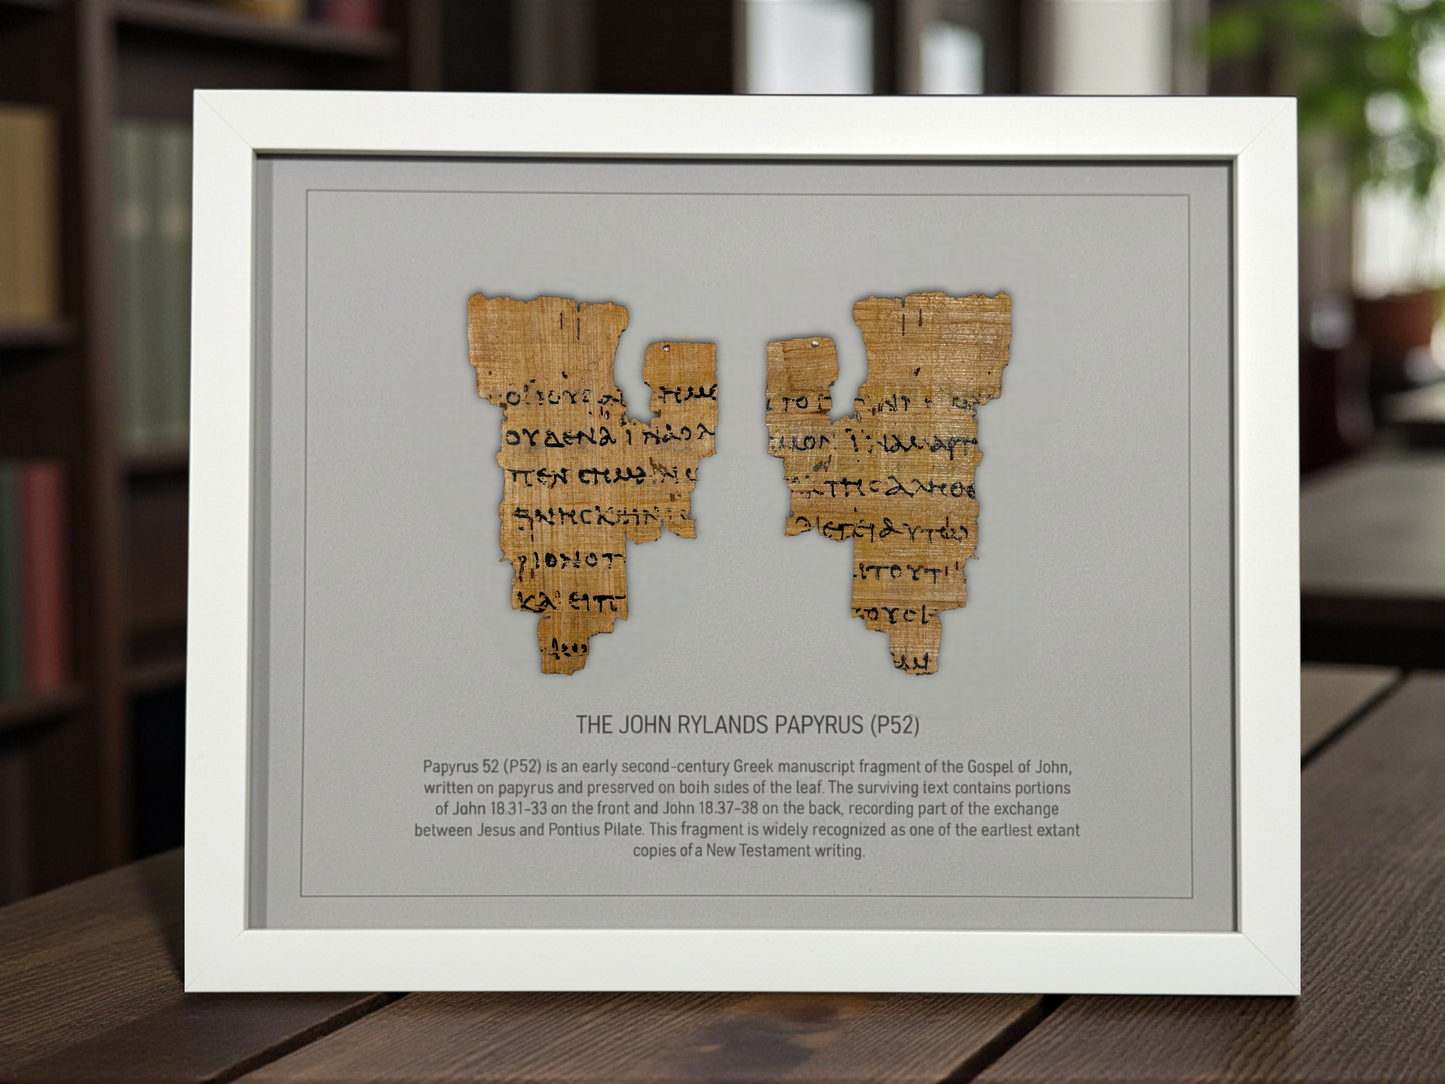 ΟΥΔΕΝΑ ΙΝΑΟΛ
ΠΕΝ ΣΗΜΩΙΝΩ
ΘΝΗCΚΗΙΝ ΙC
ΡΙΟΝ ΟΠ
ΚΑΙ ΕΙΠ
ΤΗC ΑΛΗΘΕ
ΛΕΓΕΙ ΑΥΤΩ
ΤΟΥΤ
THE JOHN RYLANDS PAPYRUS (P52)
Papyrus 52 (P52) is an early second-century Greek manuscript fragment of the Gospel of John,
written on papyrus and preserved on boih sides of the leaf. The surviving iext contains portions
of John 18.31-33 on the front and John 18.37-38 on the back, recording part of the exchange
between Jesus and Pontius Pilate. This fragment is widely recognized as one of the eartlest extant
copies of a New Testament writing.